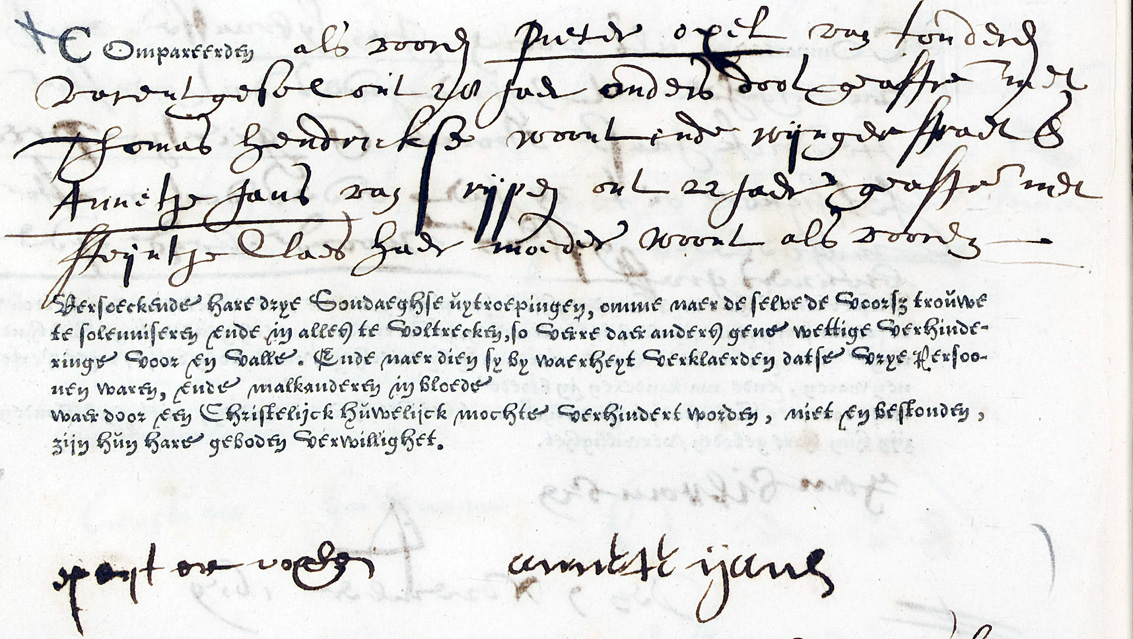 Compareerden als vooren Pieter opel van tonderen
varentgesel out 28 Jaer ouders doot geasst met
Thomas Hendrickse woont inde wijngerstraet &
Annetje Jans van rijpen out 22 Jaer geasst met
ffijntje Claes haer moeder woont als vooren
Versoeckende hare drye Sondaeghse uytroepingen, omme naer de selve de voorsz trouwe
te solemniseren ende in alles te voltrecken, so verre daer anders gene wettige verhinde-
ringe voor en valle. Ende naer dien sy by waerheyt verklaerden datse vrye Persoo-
nen waren, ende malkanderen in bloede
waer door een Christelijck huwelijck mochte verhindert worden, niet en bestonden,
zijn hun hare geboden verwillighet.
annetie ijans